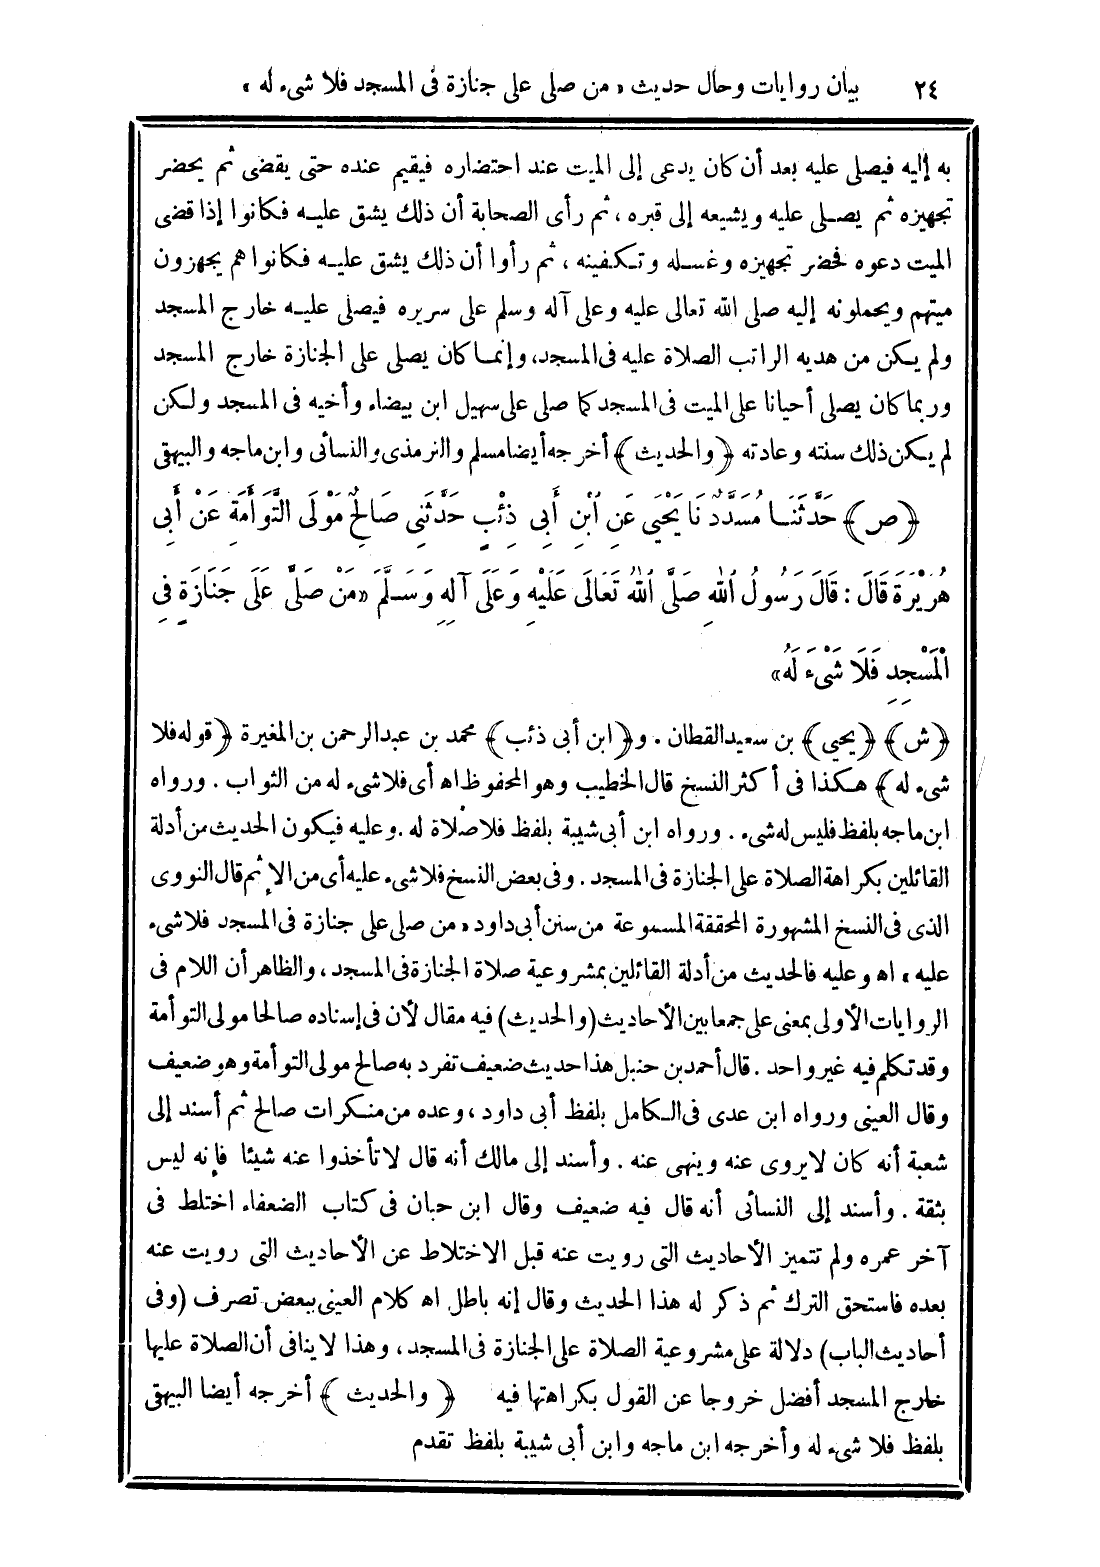 ٢٤ بيان روايات وحال حديث «من صلى على جنازة فى المسجد فلا شىء له»
به إليه فيصلى عليه بعد أن كان يدعى إلى الميت عند احتضاره فيقيم عنده حتى يقضى ثم يحضر
تجهيزه ثم يصلى عليه ويشيعه إلى قبره ، ثم رأى الصحابة أن ذلك يشق عليه فكانوا إذا قضى
الميت دعوه فحضر تجهيزه وغسله وتكفينه ، ثم رأوا أن ذلك يشق عليه فكانوا هم يجهزون
ميتهم ويحملونه إليه صلى الله تعالى عليه وعلى آله وسلم على سريره فيصلى عليه خارج المسجد
ولم يكن من هديه الراتب الصلاة عليه فى المسجد، وإنما كان يصلى على الجنازة خارج المسجد
وربما كان يصلى أحيانا على الميت فى المسجد كما صلى على سهيل ابن بيضاء وأخيه فى المسجد ولكن
لم يكن ذلك سنته وعادته ﴿والحديث﴾ أخرجه أيضا مسلم والترمذى والنسائى وابن ماجه والبيهقى
﴿ص﴾ حَدَّثَنَا مُسَدَّدٌ نَا يَحْيَى عَنِ ابْنِ أَبِى ذِئْبٍ حَدَّثَنِى صَالِحٌ مَوْلَى التَّوْأَمَةِ عَنْ أَبِى
هُرَيْرَةَ قَالَ : قَالَ رَسُولُ اللهِ صَلَّى اللهُ تَعَالَى عَلَيْهِ وَعَلَى آلِهِ وَسَلَّمَ «مَنْ صَلَّى عَلَى جَنَازَةٍ فِى
الْمَسْجِدِ فَلَا شَىْءَ لَهُ»
﴿ش﴾ ﴿يحيى﴾ بن سعيد القطان . و﴿ابن أبى ذئب﴾ محمد بن عبد الرحمن بن المغيرة ﴿قوله فلا
شىء له﴾ هكذا فى أكثر النسخ قال الخطيب وهو المحفوظ اه أى فلا شىء له من الثواب . ورواه
ابن ماجه بلفظ فليس له شىء . ورواه ابن أبى شيبة بلفظ فلا صلاة له . وعليه فيكون الحديث من أدلة
القائلين بكراهة الصلاة على الجنازة فى المسجد . وفى بعض النسخ فلا شىء عليه أى من الإثم قال النووى
الذى فى النسخ المشهورة المحققة المسموعة من سنن أبى داود «من صلى على جنازة فى المسجد فلا شىء
عليه» اه وعليه فالحديث من أدلة القائلين بمشروعية صلاة الجنازة فى المسجد ، والظاهر أن اللام فى
الروايات الأولى بمعنى على جمعا بين الأحاديث (والحديث) فيه مقال لأن فى إسناده صالحا مولى التوأمة
وقد تكلم فيه غير واحد . قال أحمد بن حنبل هذا حديث ضعيف تفرد به صالح مولى التوأمة وهو ضعيف
وقال العينى ورواه ابن عدى فى الكامل بلفظ أبى داود ، وعده من منكرات صالح ثم أسند إلى
شعبة أنه كان لا يروى عنه وينهى عنه . وأسند إلى مالك أنه قال لا تأخذوا عنه شيئا فإنه ليس
بثقة . وأسند إلى النسائى أنه قال فيه ضعيف وقال ابن حبان فى كتاب الضعفاء اختلط فى
آخر عمره ولم تتميز الأحاديث التى رويت عنه قبل الاختلاط عن الأحاديث التى رويت عنه
بعده فاستحق الترك ثم ذكر له هذا الحديث وقال إنه باطل اه كلام العينى ببعض تصرف (وفى
أحاديث الباب) دلالة على مشروعية الصلاة على الجنازة فى المسجد ، وهذا لا ينافى أن الصلاة عليها
خارج المسجد أفضل خروجا عن القول بكراهتها فيه ﴿والحديث﴾ أخرجه أيضا البيهقى
بلفظ فلا شىء له وأخرجه ابن ماجه وابن أبى شيبة بلفظ تقدم